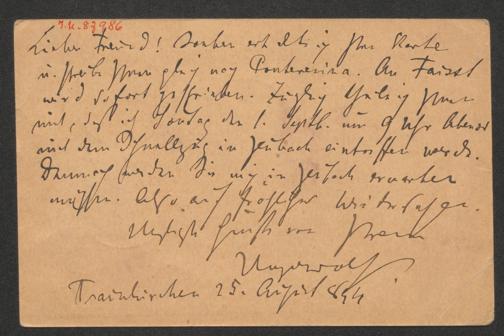 I.N. 87986
Lieber Freund! Soeben erhalte ich Ihre Karte
u. schreibe Ihnen gleich nach Pontresina. An Faisst
wird sofort geschrieben. Zugleich theile ich Ihnen
mit, daß ich Sonntag den 1. Septb. um 9 Uhr Abends
mit dem Schnellzug in eintreffen werde.
Demnach werden Sie mich in erwarten
müssen. Also auf fröhliches Wiedersehen.
Herzliche Grüße von Ihrem
Hugo Wolf
Traunkirchen 25. August 894